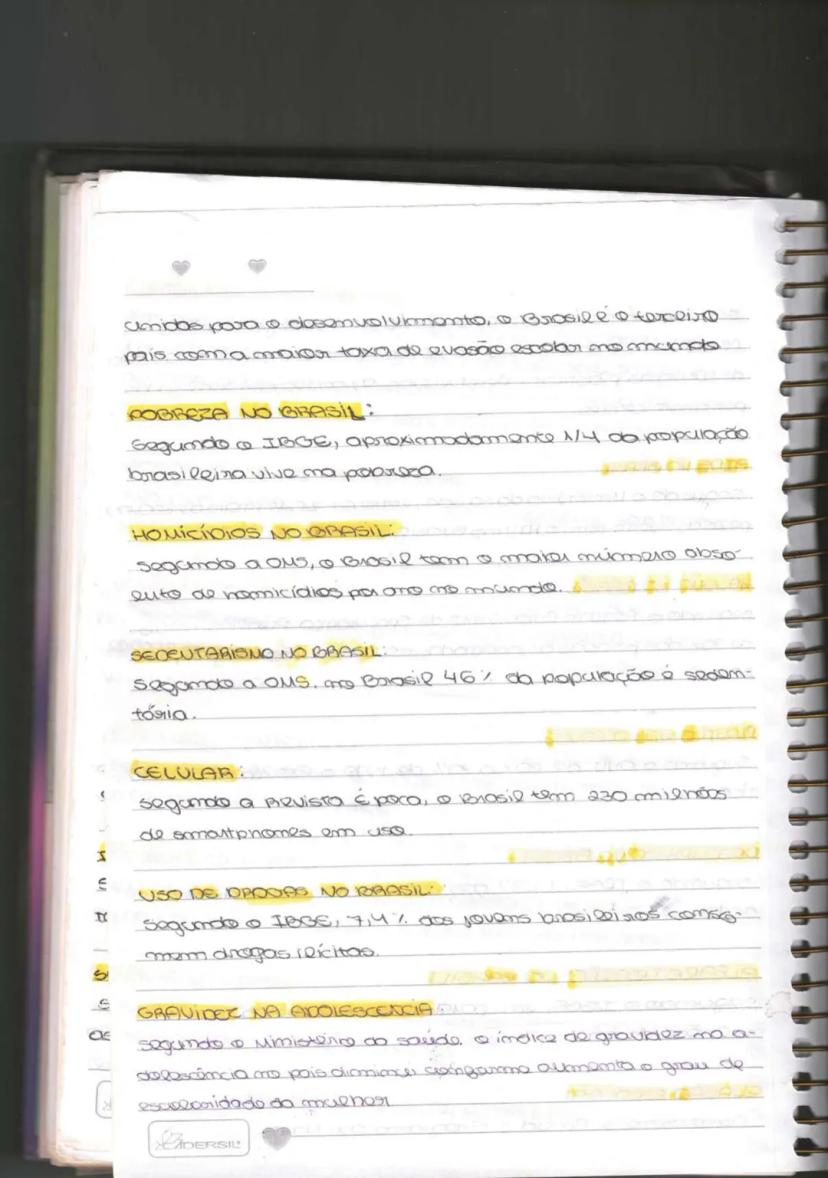 unidas para o desenvolvimento, o Brasil é o terceiro
país com a maior taxa de evasão escolar no mundo
POBREZA NO BRASIL:
Segundo o IBGE, aproximadamente 1/4 da população
brasileira vive na pobreza.
HOMICÍDIOS NO BRASIL:
Segundo a OMS, o Brasil tem o maior número abso-
luto de homicídios por ano no mundo.
SEDENTARISMO NO BRASIL:
Segundo a OMS, no Brasil 46% da população é seden-
tária.
CELULAR:
Segundo a Revista Época, o Brasil tem 230 milhões
de smartphones em uso.
USO DE DROGAS NO BRASIL:
Segundo o IBGE, 7,4% dos jovens brasileiros conso-
mem drogas ilícitas.
GRAVIDEZ NA ADOLESCENCIA
segundo o Ministério da saúde, o índice de gravidez na a-
dolescência no país diminui conforme aumenta o grau de
escolaridade da mulher